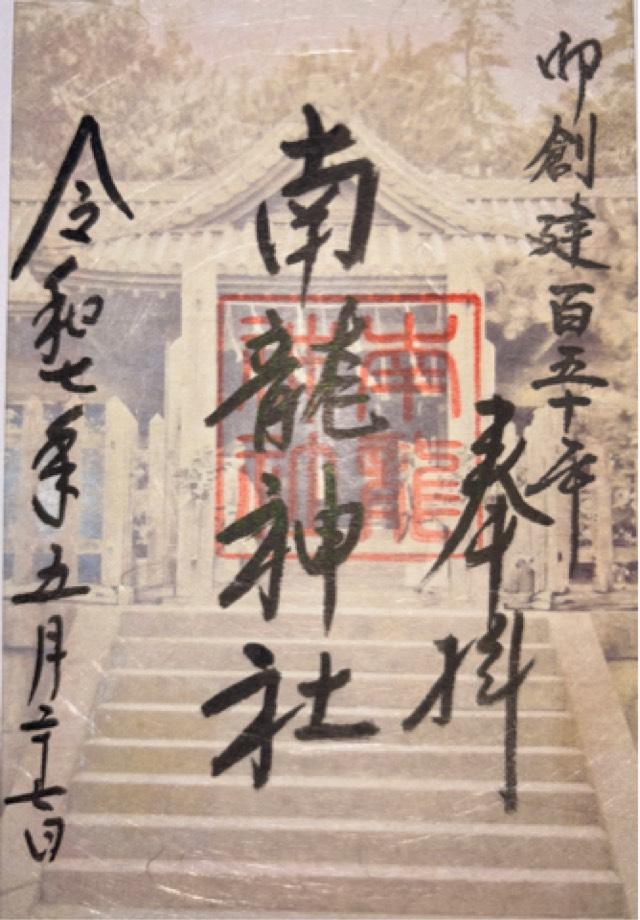 御創建百五十年
奉拝
南龍神社
南龍神社
令和七年五月二十七日